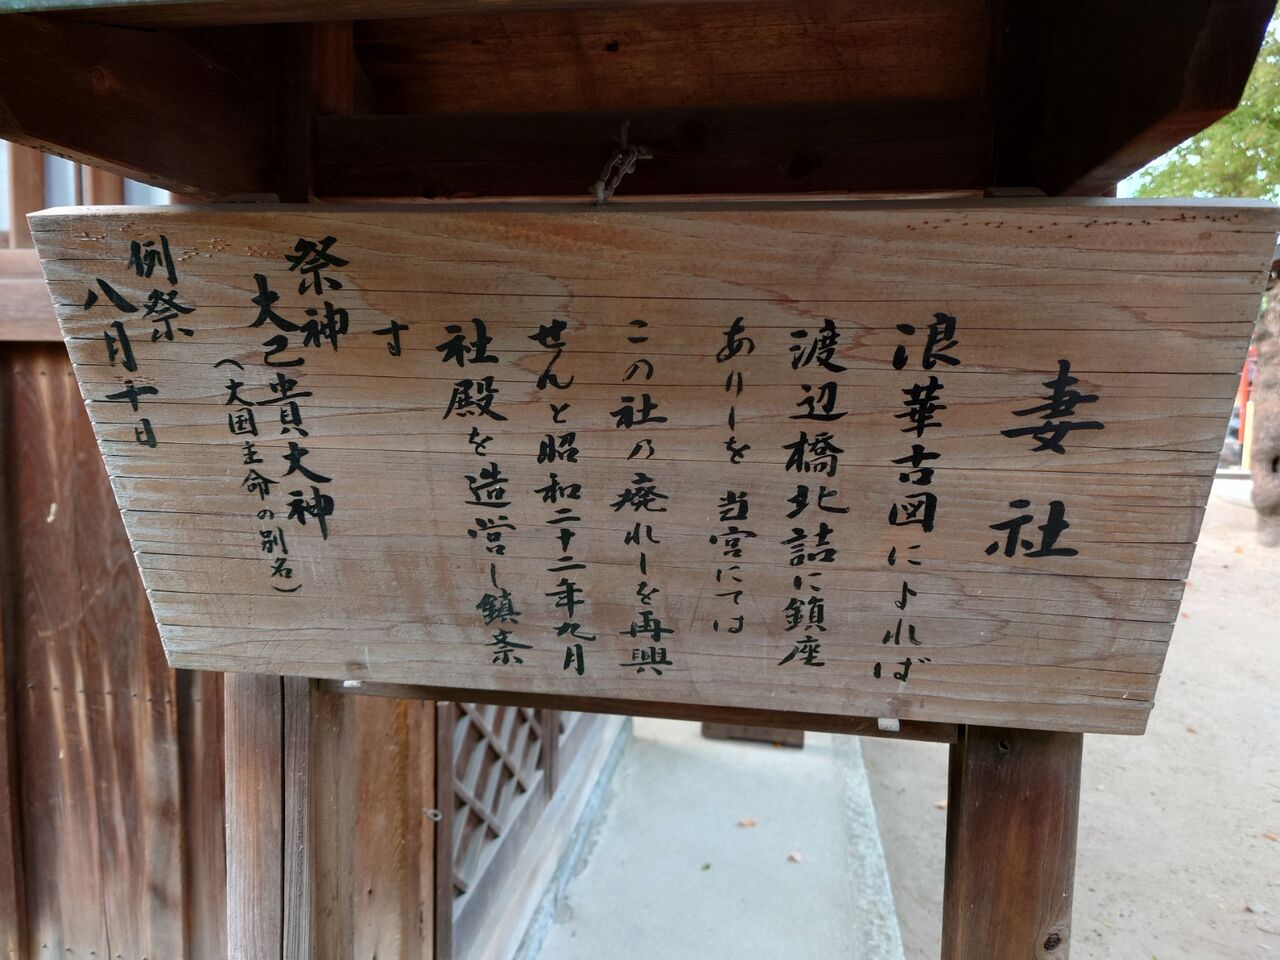 妻社
浪華古図によれば
渡辺橋北詰に鎮座
ありしを 当宮にては
この社の廃れしを再興
せんと昭和二十二年九月
社殿を造営し鎮斎
す
祭神
大己貴大神
(大国主命の別名)
例祭
八月十日